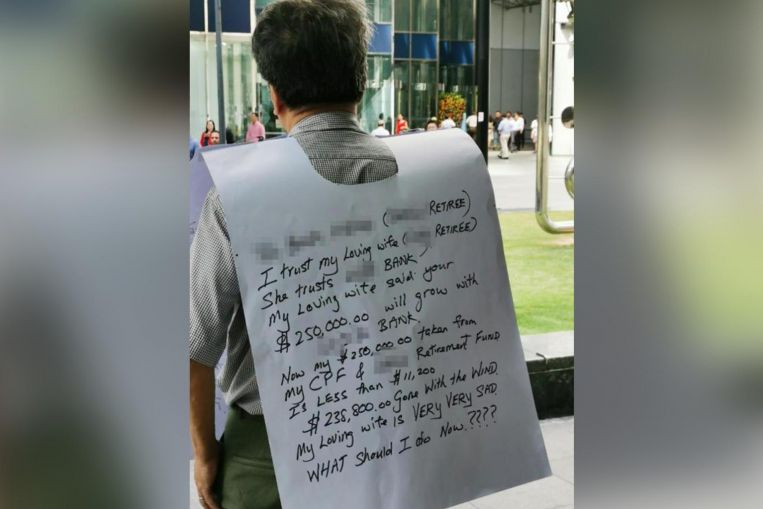 ( RETIREE)
I trust my Loving wife ( RETIREE)
She trusts BANK)
My Loving wife said your
$250,000.00 will grow with
BANK,
Now my $250,000.00 taken from
my CPF & Retirement FUND
Is LESS than $11,200
$238,800.00 Gone With the WIND
My Loving wife is VERY VERY SAD
WHAT Should I do Now.????